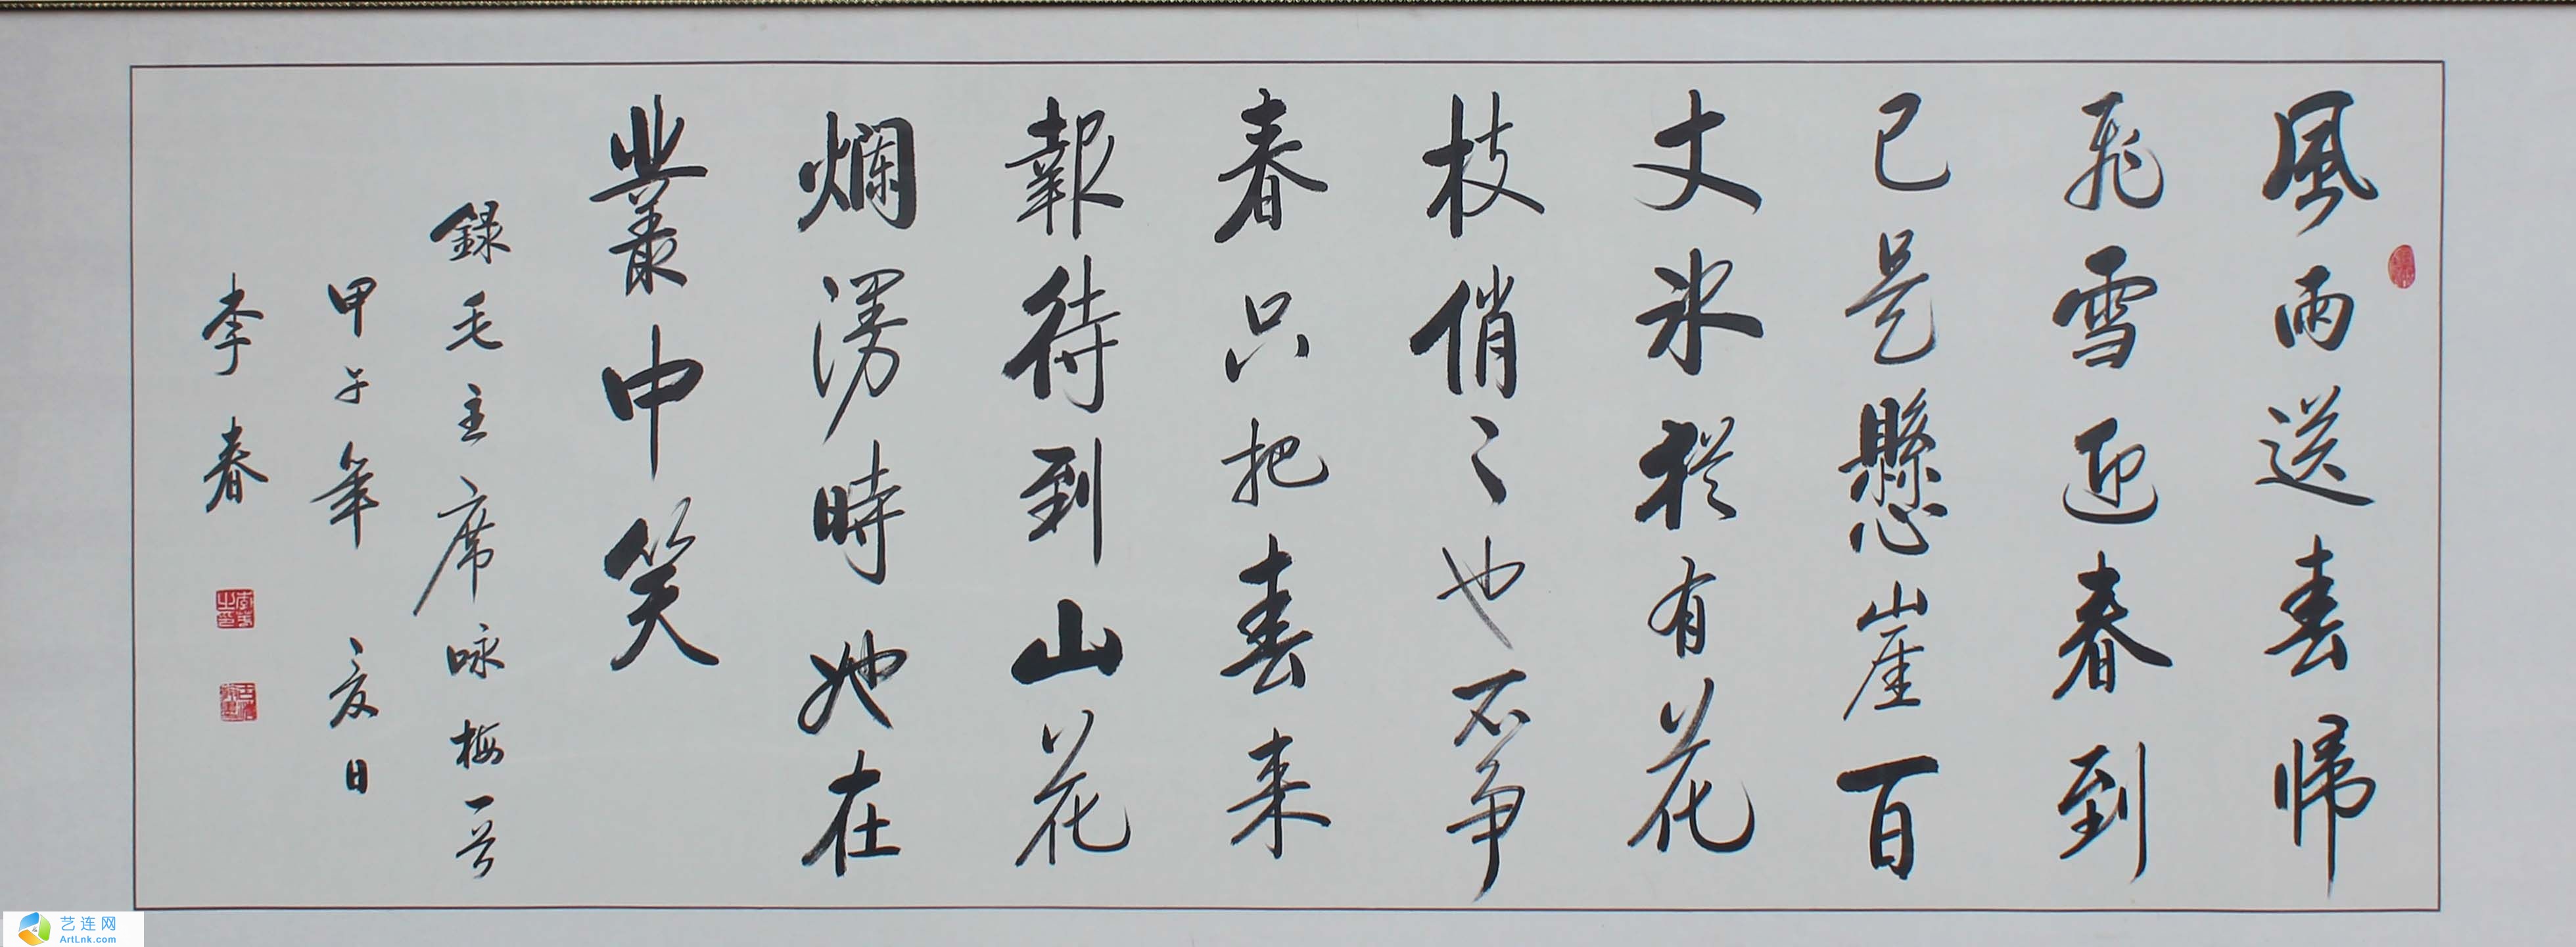 風雨送春歸
飛雪迎春到
已是懸崖百
丈冰猶有花
枝俏〻也不爭
春只把春來
報待到山花
爛漫時她在
叢中笑
錄毛主席咏梅一首
甲午年 夏日
李春
艺连网
ArtLnk.com